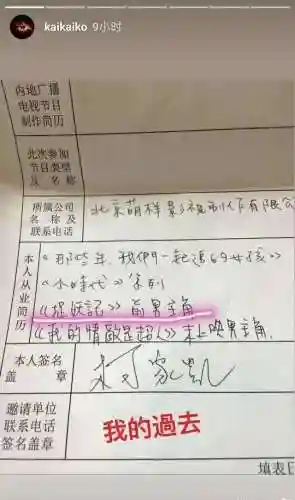 kaikaiko 9小时
内地广播
电视节目
制作简历
此次参加
节目类型
及 名 称
所属公司
名 称 及
联系电话
北京萌样影视制作有限公
本人从业简历
《那些年，我們一起追的女孩》
《小時代》系列
《捉妖記》前男主角
《我的情敵是超人》未上映男主角.
本人签名
盖 章
柯家凱
邀请单位
联系电话
签名盖章
我的過去
填表日